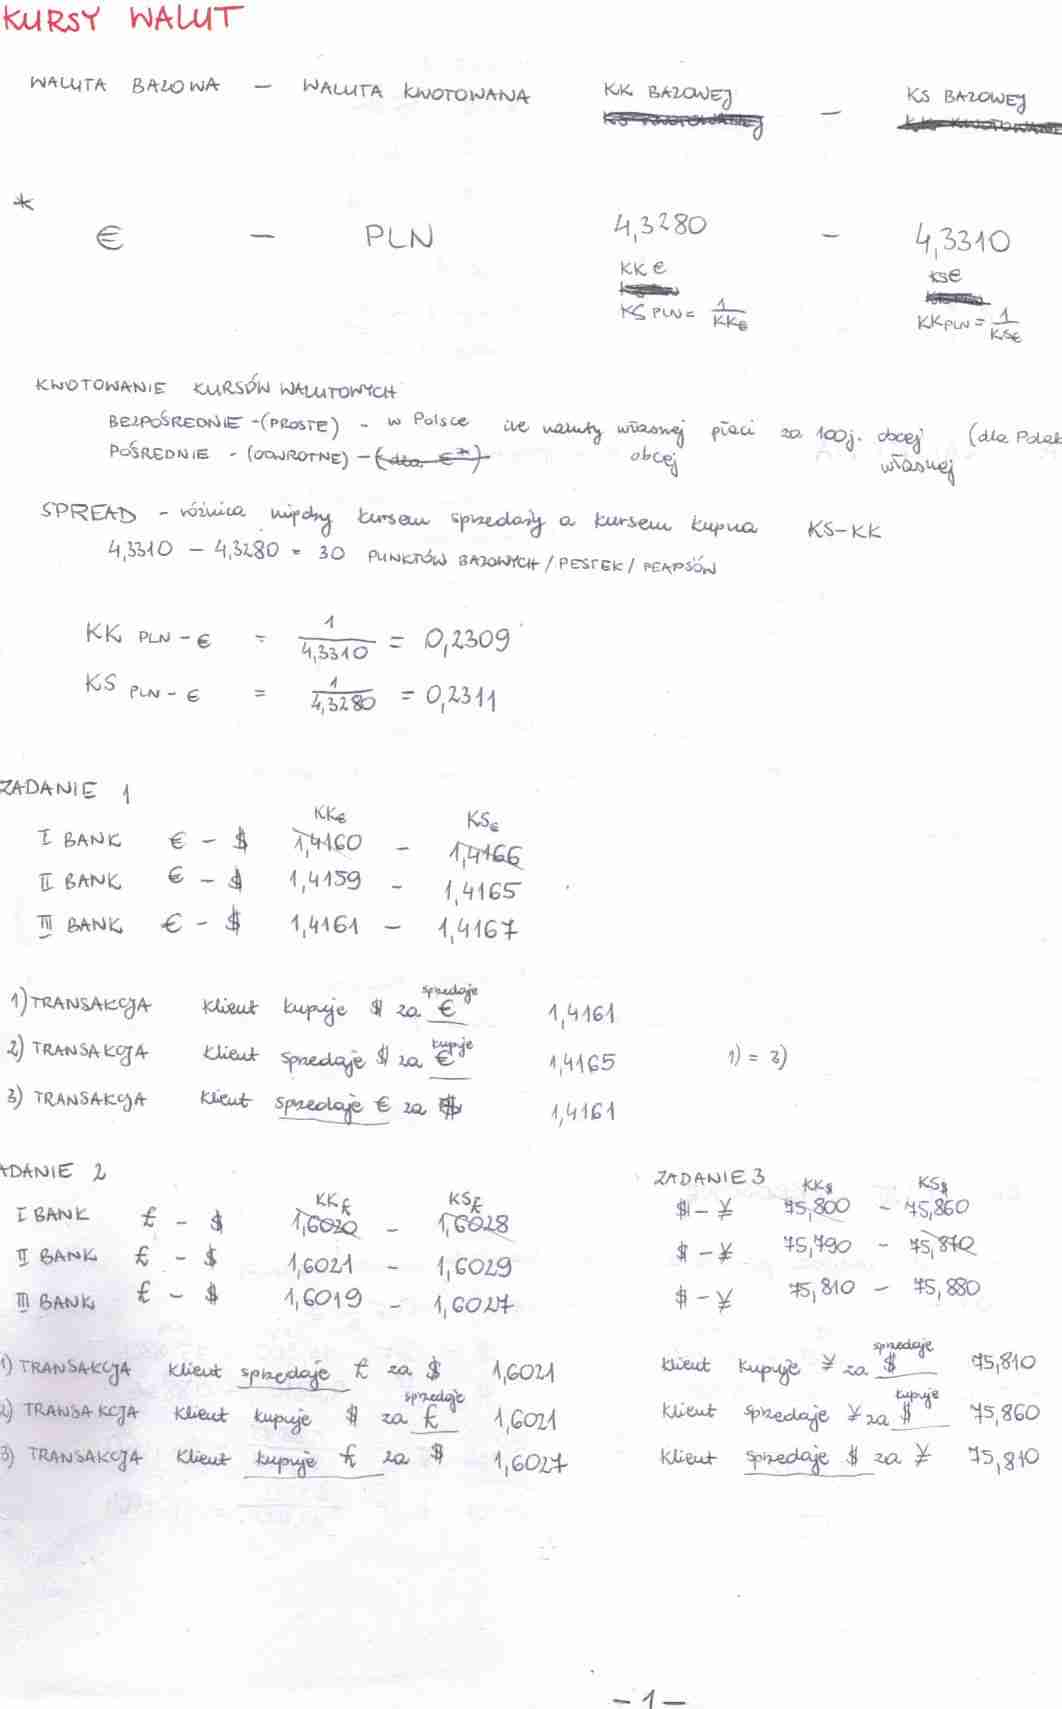 KURSY WALUT
WALUTA BAZOWA – WALUTA KWOTOWANA KK BAZOWEJ – KS BAZOWEJ
* € – PLN 4,3280 – 4,3310
KK € KS€
KS PLN = 1/KK€ KK PLN = 1/KS€
KWOTOWANIE KURSÓW WALUTOWYCH
BEZPOŚREDNIE - (PROSTE) - w Polsce ile waluty własnej płaci za 100j. obcej (dla Polak
POŚREDNIE - (ODWROTNE) - (dla €*) obcej własnej
SPREAD - różnica między kursem sprzedaży a kursem kupna KS-KK
4,3310 – 4,3280 = 30 PUNKTÓW BAZOWYCH / PESTEK / PEAPSÓW
KK PLN - € = 1/4,3310 = 0,2309
KS PLN - € = 1/4,3280 = 0,2311
ZADANIE 1
KK€ KS€
I BANK € – $ 1,4160 – 1,4166
II BANK € – $ 1,4159 – 1,4165
III BANK € – $ 1,4161 – 1,4167
sprzedaje
1) TRANSAKCJA Klient kupuje $ za € 1,4161
kupuje
2) TRANSAKCJA Klient sprzedaje $ za € 1,4165 1) = 3)
3) TRANSAKCJA Klient sprzedaje € za $ 1,4161
ADANIE 2
KK£ KS£
I BANK £ – $ 1,6020 – 1,6028
II BANK £ – $ 1,6021 – 1,6029
III BANK £ – $ 1,6019 – 1,6027
1) TRANSAKCJA Klient sprzedaje £ za $ 1,6021
sprzedaje
2) TRANSAKCJA Klient kupuje $ za £ 1,6021
3) TRANSAKCJA Klient kupuje £ za $ 1,6027
ZADANIE 3
KK$ KS$
$ – ¥ 75,800 – 75,860
$ – ¥ 75,790 – 75,870
$ – ¥ 75,810 – 75,880
sprzedaje
Klient kupuje ¥ za $ 75,810
kupuje
Klient sprzedaje ¥ za $ 75,860
Klient sprzedaje $ za ¥ 75,810
– 1 –